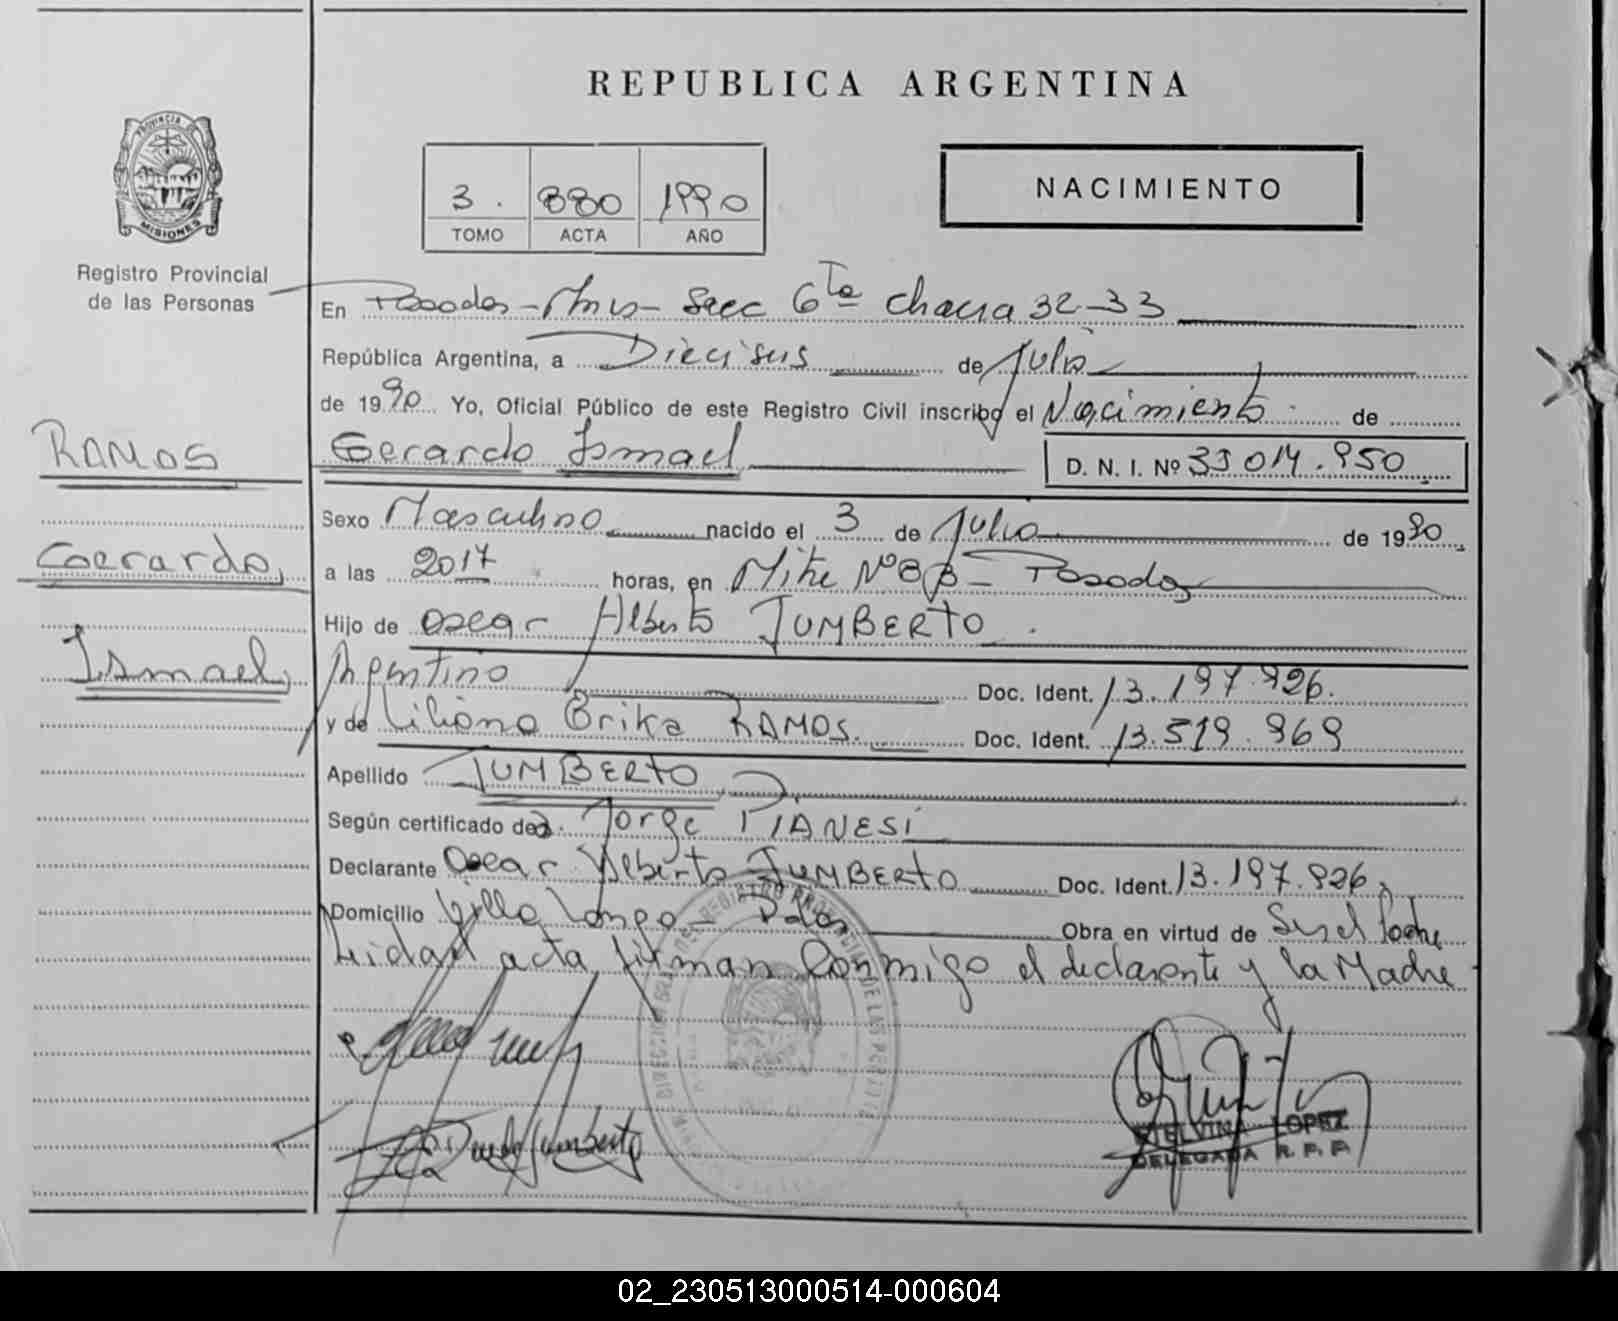 REPUBLICA ARGENTINA
PROVINCIA DE
MISIONES
Registro Provincial
de las Personas
3. 880 1990
TOMO ACTA AÑO
NACIMIENTO
En Posadas - Mnes - Secc 6ta chacra 32-33
República Argentina, a Dieciseis de Julio
de 1990 Yo, Oficial Público de este Registro Civil inscribo el Nacimiento de
RAMOS
Gerardo Ismael
D. N. I. Nº 35 014.950
Sexo Masculino nacido el 3 de Julio de 1990
Gerardo,
a las 2017 horas, en Mitre Nº 88 - Posadas
Hijo de Oscar Alberto JUMBERTO
Ismael,
Argentino Doc. Ident. 13.197.926.
y de Liliana Erika RAMOS. Doc. Ident. 13.519.969
Apellido JUMBERTO
Según certificado de Jorge PIANESI
Declarante Oscar Alberto JUMBERTO Doc. Ident. 13.197.926,
Domicilio Villa Longa - Pdas Obra en virtud de Ser el Padre
Leida el acta firman conmigo el declarante y la Madre
ETELVINA LOPEZ
DELEGADA R. P. P.
02_230513000514-000604